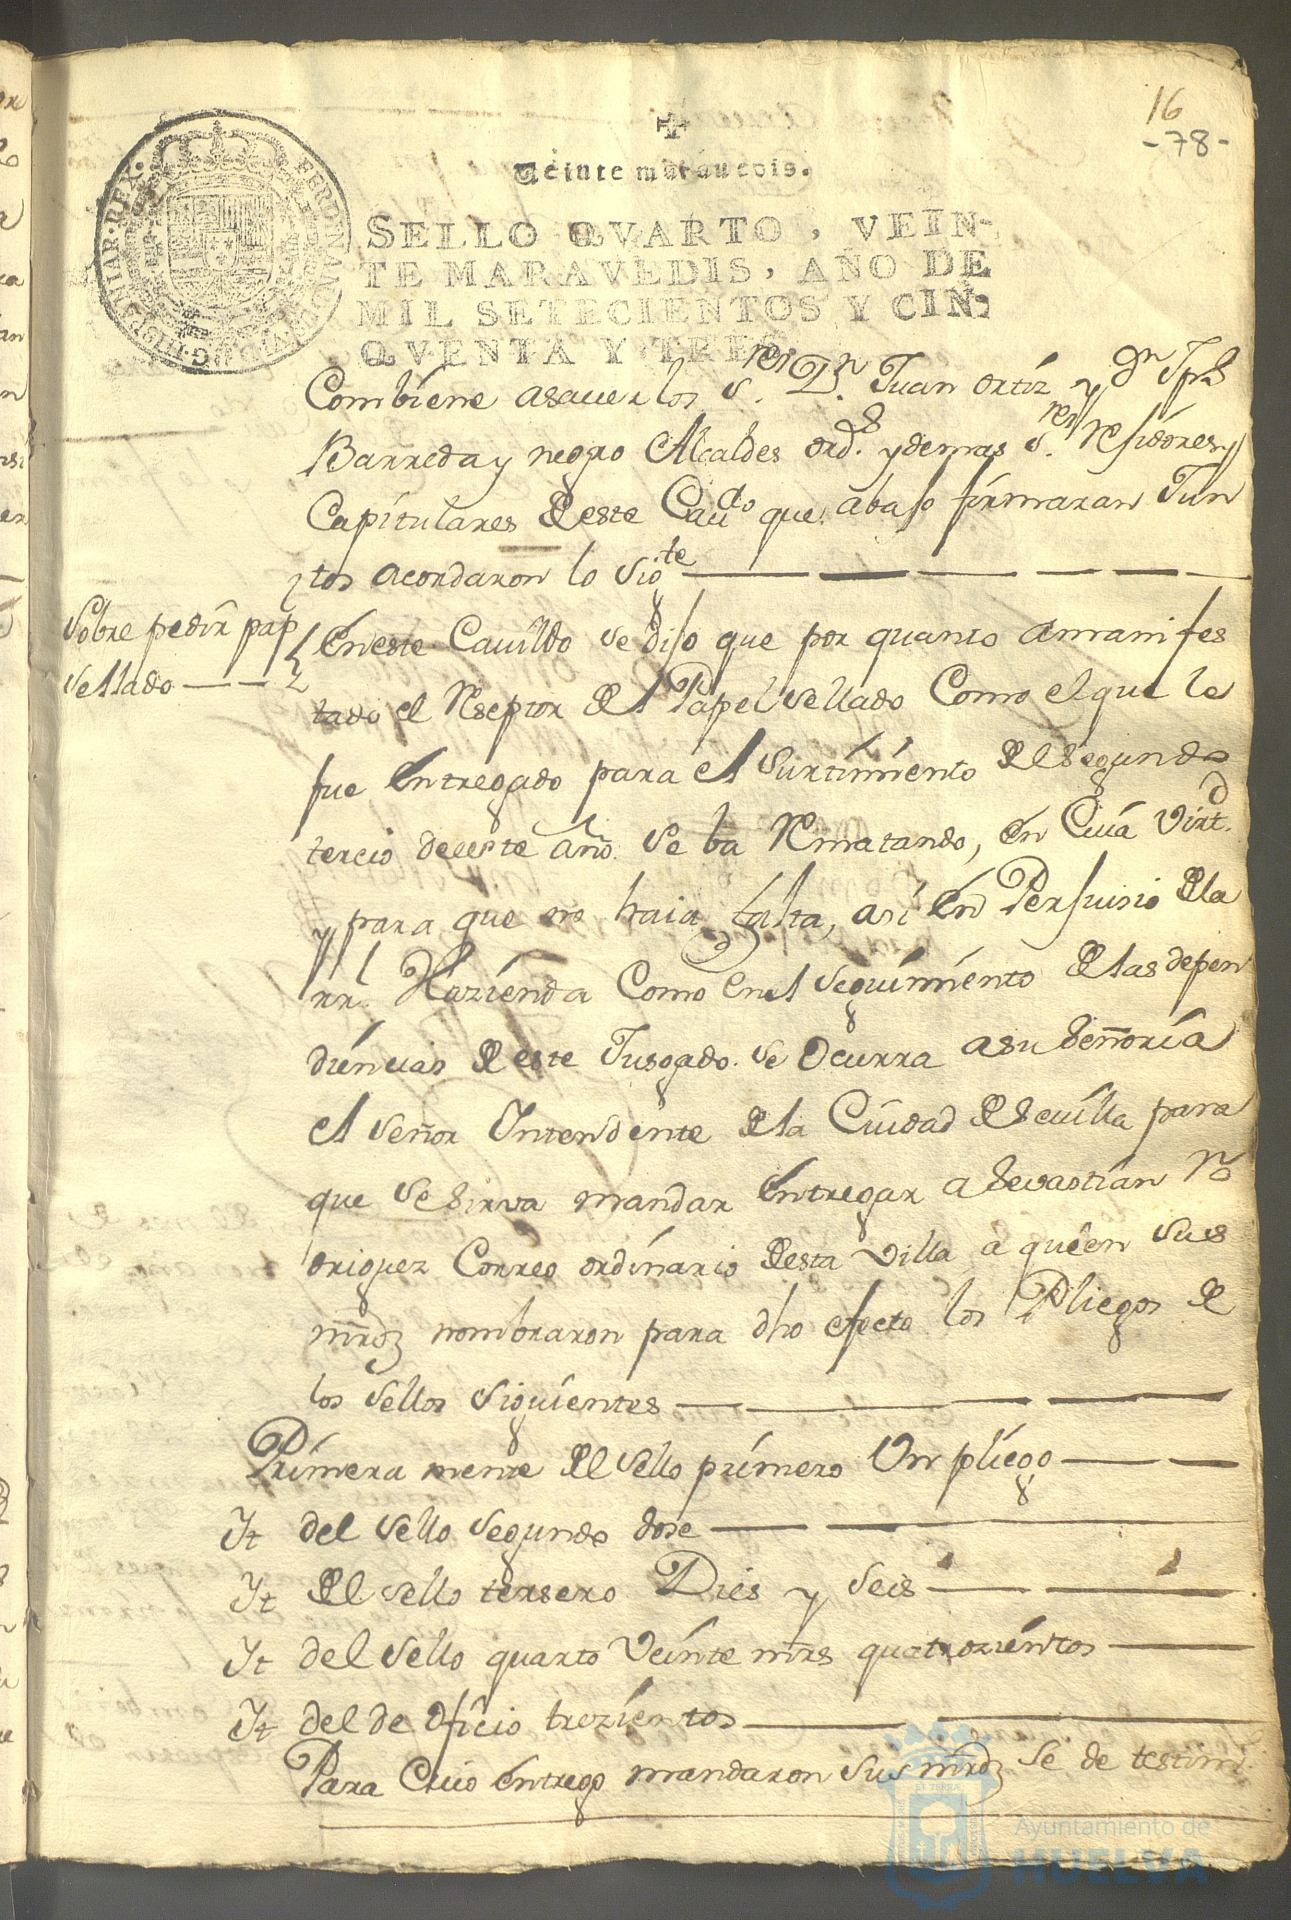 16
-78-
FERDINANDUS VI D G HISPANIAR REX
Veinte maravedis.
SELLO QVARTO, VEIN-
TE MARAVEDIS, AÑO DE
MIL SETECIENTOS Y CIN-
QVENTA Y TRES.
Combiene asauer los S.res Dn. Juan Ortiz y Dn Jph
Barreda y negro Alcaldes ord.s y demas S.res rexidores y
Capitulares de este Caudo que abajo firmaran Jun
tos acordaron lo sigte
Sobre pedir pap
sellado
En este Cauildo se dijo que por quanto a manifes
tado el Reseptor del Papel sellado Como el que le
fue entregado para el surtimiento del segundo
tercio de este año se ba Rematando, en Cuia Virtd.
y para que no haia falta, asi en Perjuisio de la
rl. Hazienda Como en el seguimiento de las depen
diencias de este Jusgado. se Ocurra a su señoria
el señor Yntendente de la Ciudad de Seuilla para
que se sirva mandar entregar a Sevastian Ro
driguez Correo ordinario de esta Villa a quien sus
mrdz nombraron para dho efecto los Pliegos de
los sellos siguientes
Primera mente del sello primero Un pliego
Yt del sello segundo dose
Yt del sello tersero Dies y seis
Yt del sello quarto Veinte mrs quatrozientos
Yt del de oficio trezientos
Para Cuio entrego mandaron sus mrdz se de testim.
EI TERRE
Ayuntamiento de
HUELVA